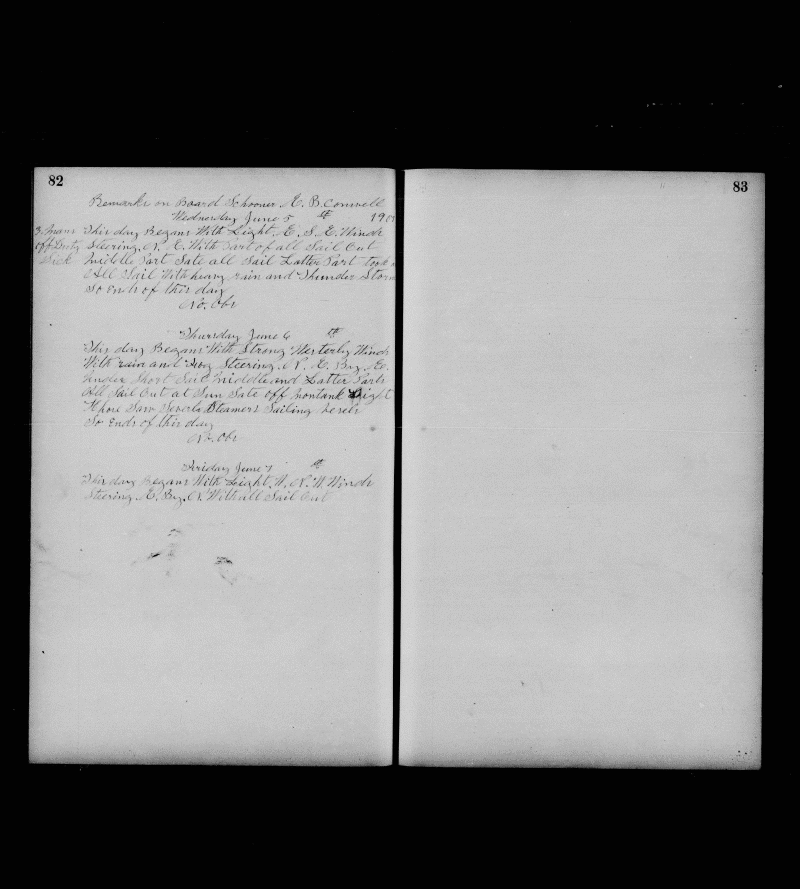 82
Remarks on Board Schooner A. B. Conwell
Wednesday June 5 th 190
3 Mans
off Duty
Sick
This day Begans With Light E, S, E. Winds
Steering N, E. With Part of all Sail Out
Middle Part Sate all Sail Latter Part took
All Sail With heavy rain and Thunder Storm
So Ends of this day
No. Obs
Thursday June 6 th
This day Begans With Strong Westerly Winds
With rain and Steering N, E. By, E.
Under Short Sail Middle and Latter Parts
All Sail Out at Sun Sate off Montank Light
Saw Severls Steamers Sailing
So Ends of this day
No. Obs
Friday June 7 th
This day Begans With Light W, N. W. Winds
Steering E. By. N. With all Sail Out
83